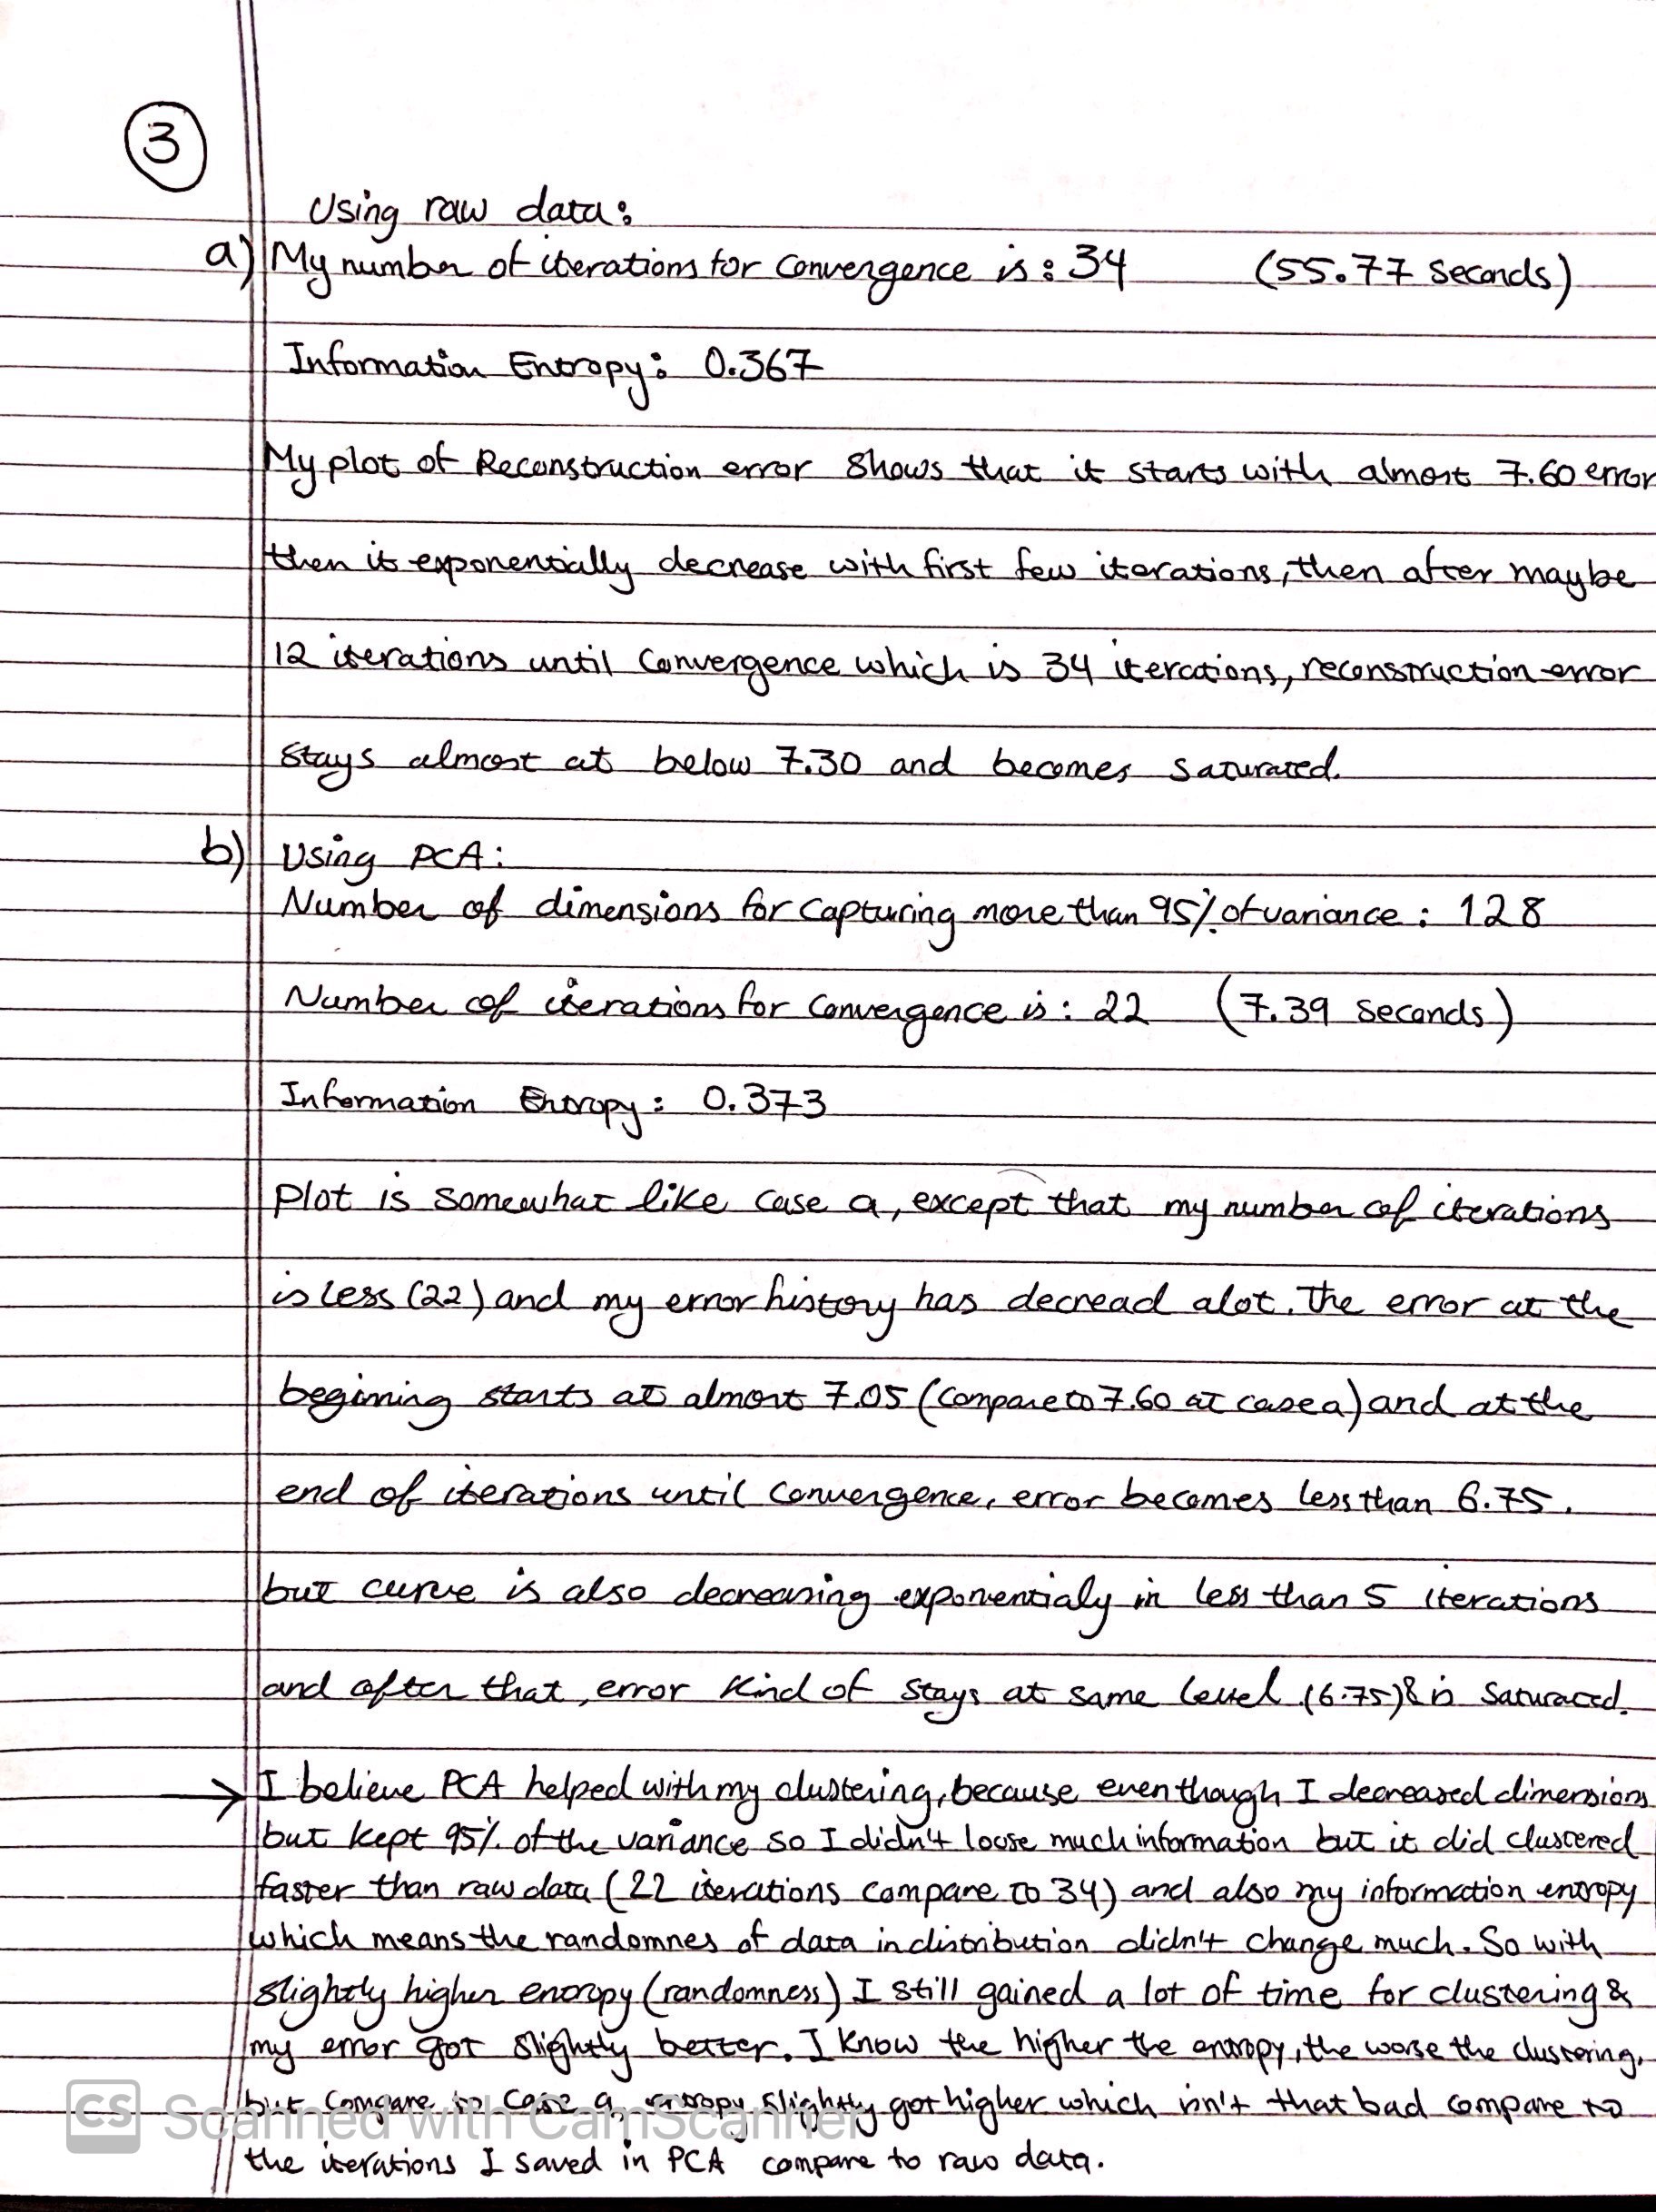 3
Using raw data:
a) My number of iterations for convergence is: 34 (55.77 seconds)
Information Entropy: 0.367
My plot of Reconstruction error shows that it starts with almost 7.60 error
then it exponentially decrease with first few iterations, then after maybe
12 iterations until convergence which is 34 iterations, reconstruction error
stays almost at below 7.30 and becomes saturated.
b) Using PCA:
Number of dimensions for capturing more than 95% of variance: 128
Number of iterations for convergence is: 22 (7.39 seconds)
Information Entropy: 0.373
plot is somewhat like case a, except that my number of iterations
is less (22) and my error history has decread alot. The error at the
begining starts at almost 7.05 (compare to 7.60 at case a) and at the
end of iterations until convergence, error becomes less than 6.75.
but curve is also decreasing exponentialy in less than 5 iterations
and after that, error kind of stays at same level (6.75) & is saturated.
→ I believe PCA helped with my clustering, because even though I decreased dimensions
but kept 95% of the variance so I didn't loose much information but it did clustered
faster than raw data (22 iterations compare to 34) and also my information entropy
which means the randomnes of data in distribution didn't change much. So with
slightly higher enoropy (randomness) I still gained a lot of time for clustering &
my error got slightly better. I know the higher the entropy, the worse the clustering,
but compare to case a, entropy slightly got higher which isn't that bad compare to
the iterations I saved in PCA compare to raw data.
CS Scanned with CamScanner